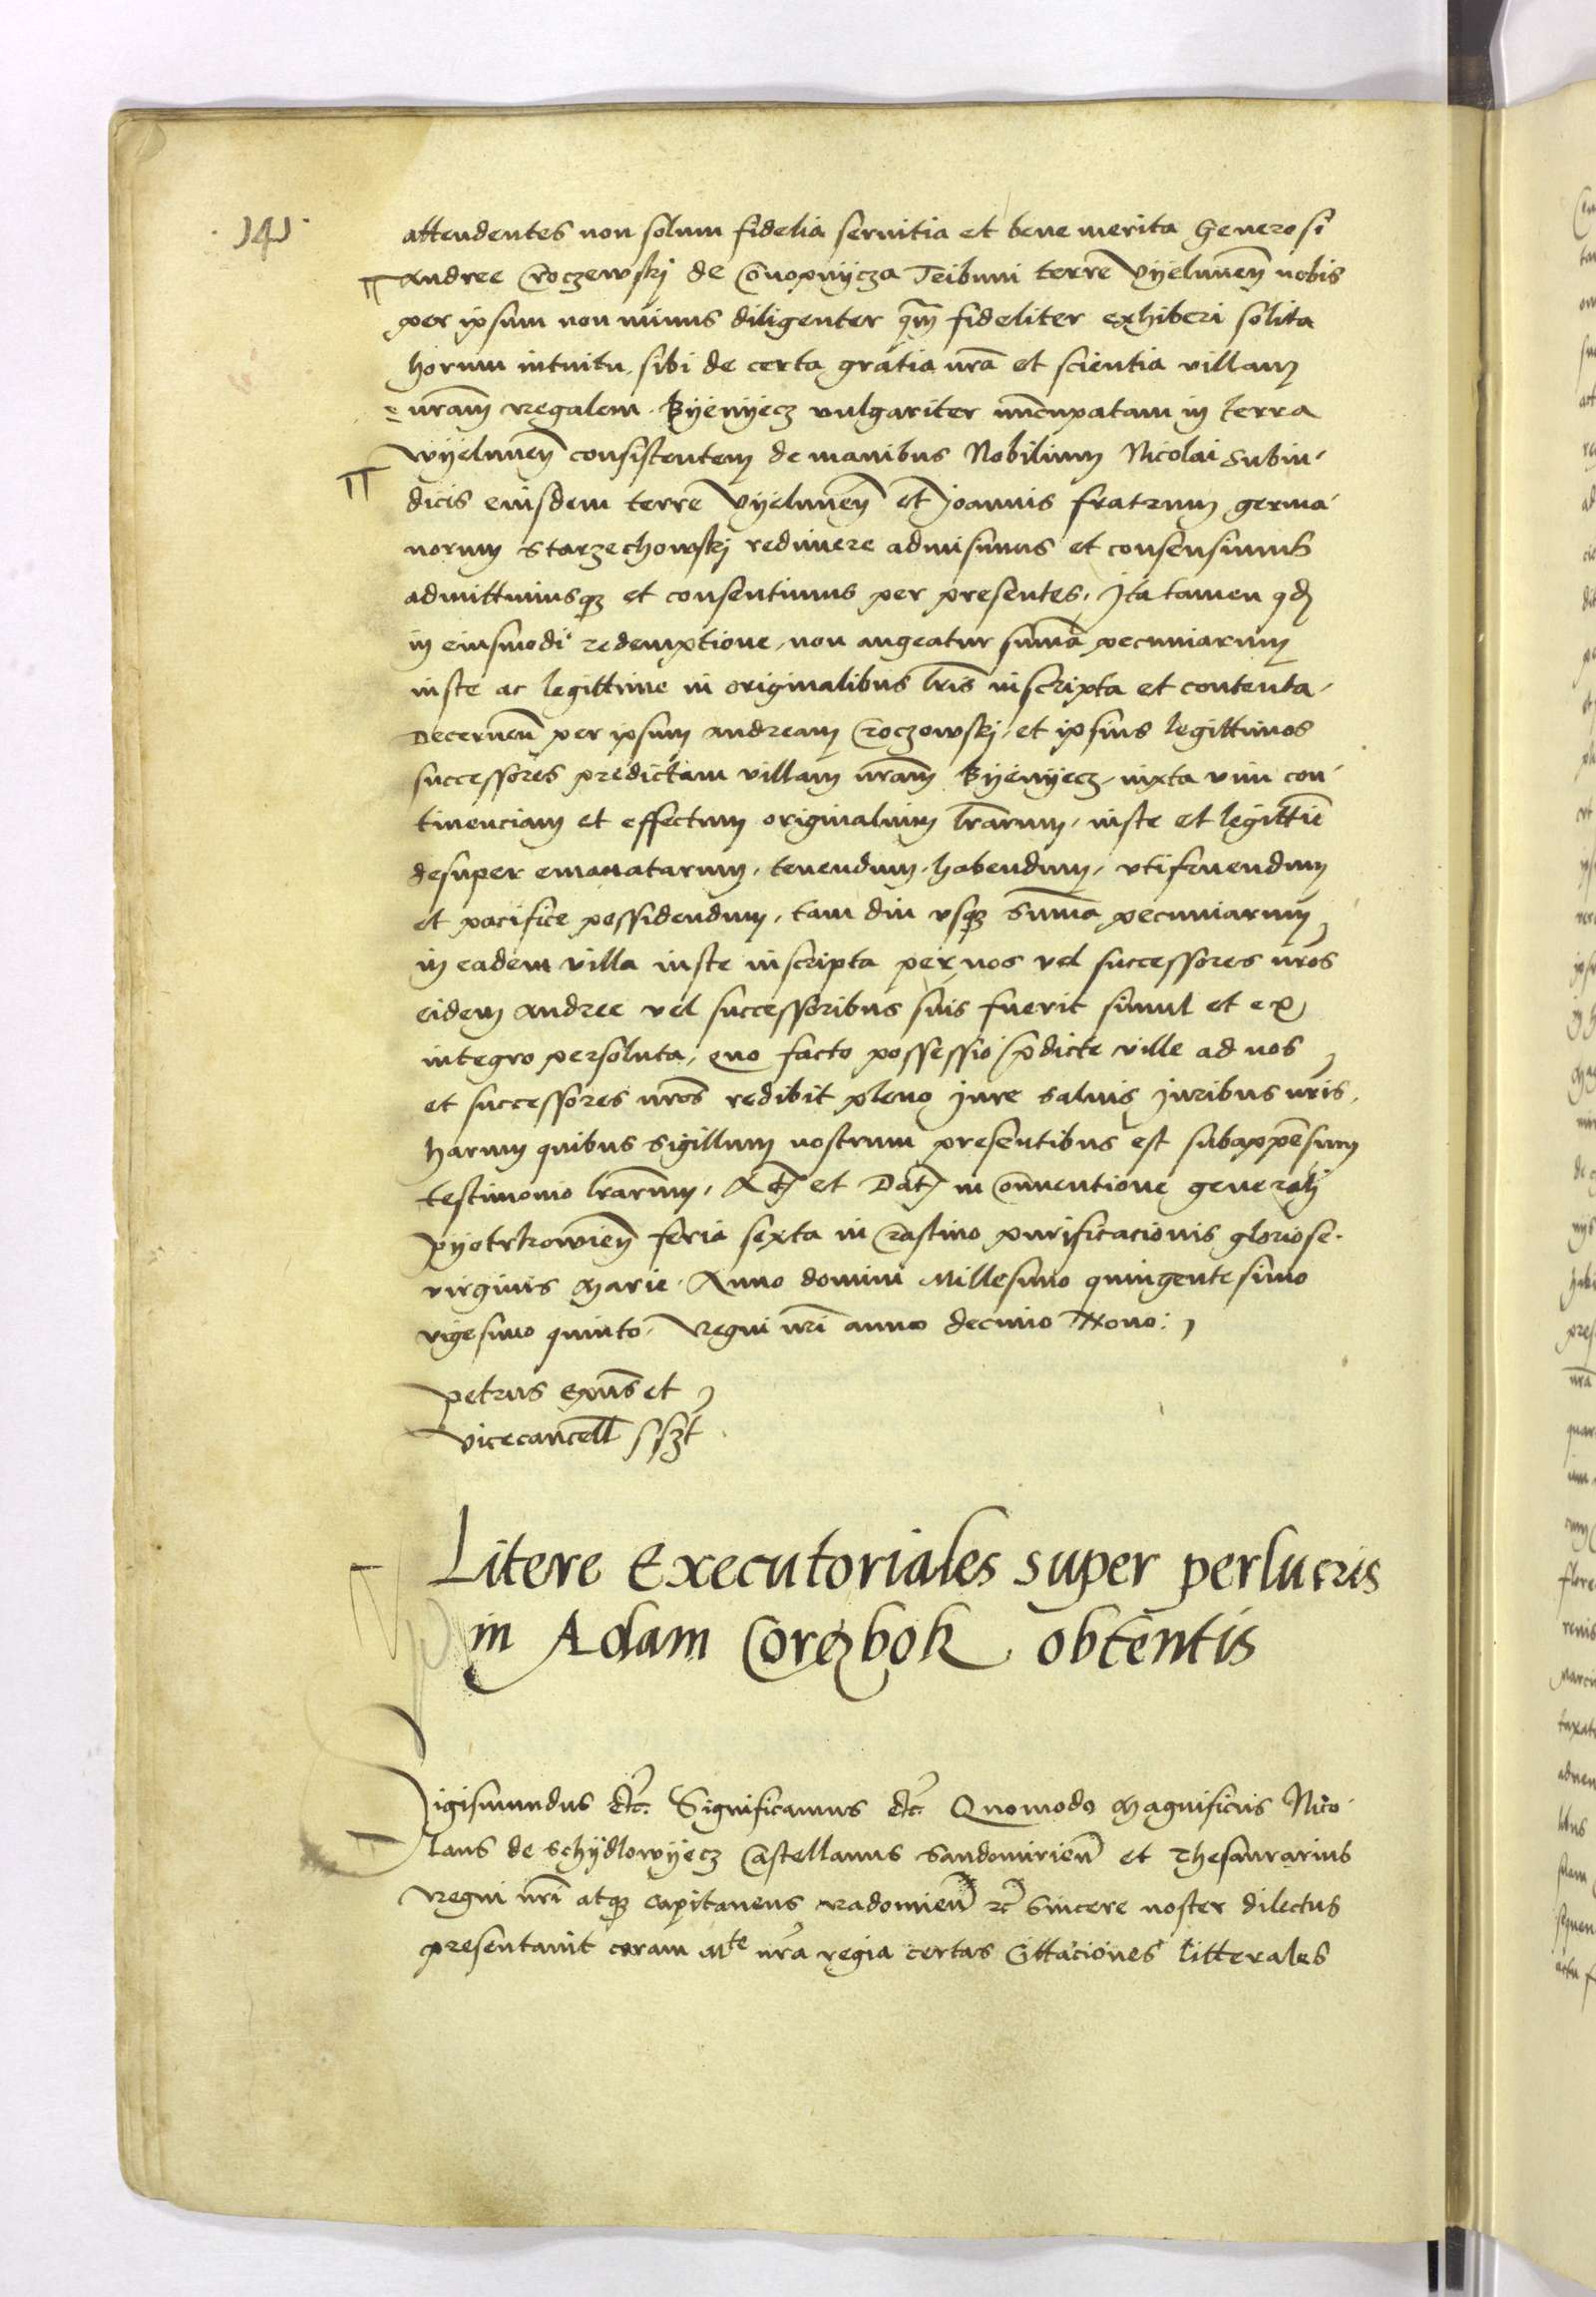 141
attendentes non solum fidelia servitia et bene merita Generosi
Andree Croczewskj de Conopnÿcza Tribuni terre Vÿelunen̄ nobis
per ipsum non minus diligenter q̄m fideliter exhiberi solita
horum intuitu, sibi de certa gratia nr̄a et scientia villam
nr̄am Regalem Byenÿecz vulgariter nūcupatam in terra
Wÿelunen̄ consistentem de manibus Nobilium Nicolai Subiu-
dicis eiusdem terre Vÿelunen̄ et Joannis fratrum germa-
norum Starzechowskj redimere admisimus et consensimus
admittimusq3 et consentimus per presentes, Ita tamen qd
in eiusmodi redemptione, non augeatur sum̄a pecuniarum
iuste ac legittime in originalibus lr̄is inscripta et contenta,
Decernen̄ per ipsum Andream Croczowskj, et ipsius legittimos
successores predictam villam nr̄am Byenÿecz, iuxta vim con-
tinenciam et effectum originalium lr̄arum, iuste et legittīe
desuper emanatarum, tenendum, habendum, utifruendum
et pacifice possidendum, tam diu usq3 Sum̄a pecuniarum
in eadem villa iuste inscripta per nos vel successores nr̄os
eidem Andree vel successoribus suis fuerit simul et ex
integro persoluta, Quo facto possessio p̄dicte ville ad nos
et successores nr̄os redibit pleno Jure Salvis Juribus nr̄is,
Harum quibus Sigillum nostrum presentibus est subappēsum
testimonio lr̄arum, Act̄ et Dat̄ in Conventione generalj
Pÿotrkowien̄ feria sexta in Crastino purificacionis gloriose
virginis Marie, Anno domini Millesimo quingentesimo
vigesimo quinto, Regni nr̄i anno decimo Nono:
Petrus Ep̄us et
Vicecancell ssz̄t
Litere Executoriales super perlucris
in Adam Corzbok obtentis
Sigismundus etc̄. Significamus etc̄. Quomodo Magnificus Nico-
laus de Schÿdlowÿecz Castellanus Sandomirien̄ et Thesaurarius
Regni nr̄i atq3 Capitaneus Radomien̄ etc̄ Sincere noster dilectus
presentavit coram Mte nr̄a regia certas Cittaciones litterales